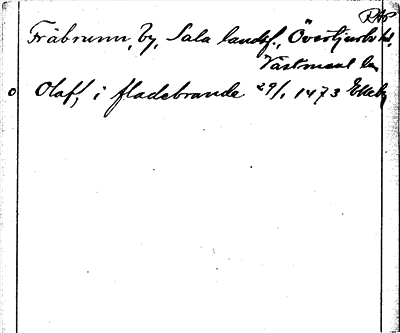 RAP
Fräbrunn, by, Sala landsf., Övertjurbo hd,
Västmanl. län
Olaf, i fladebrande 29/1 1473